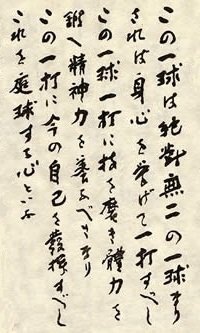 この一球は絶對無二の一球なり
されば身心を挙げて一打すべし
この一球一打に技を磨き體力を
鍛へ精神力を養ふべきなり
この一打に今の自己を發揮すべし
これを庭球する心といふ